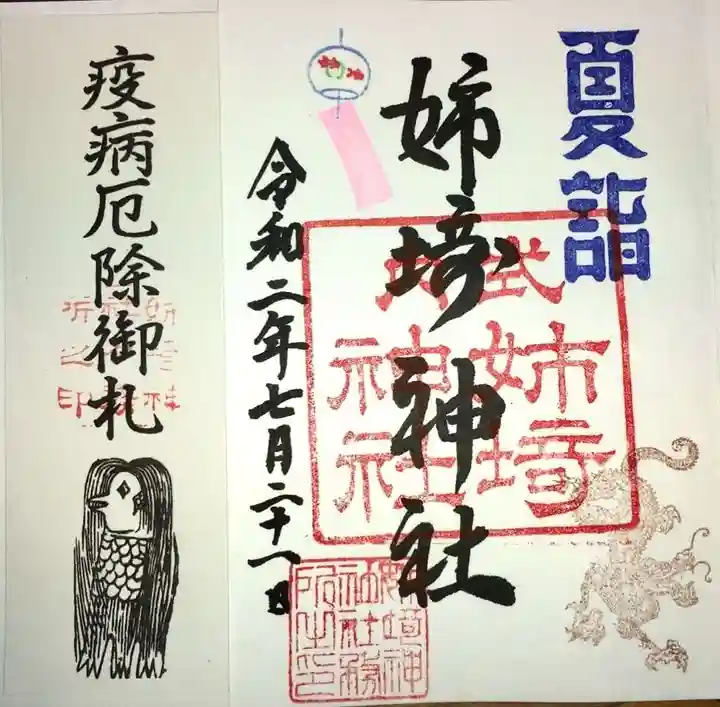 夏詣
姉埼神社
式内
姉埼
神社
令和二年七月二十一日
姉埼神
社社務
所之印
疫病厄除御札